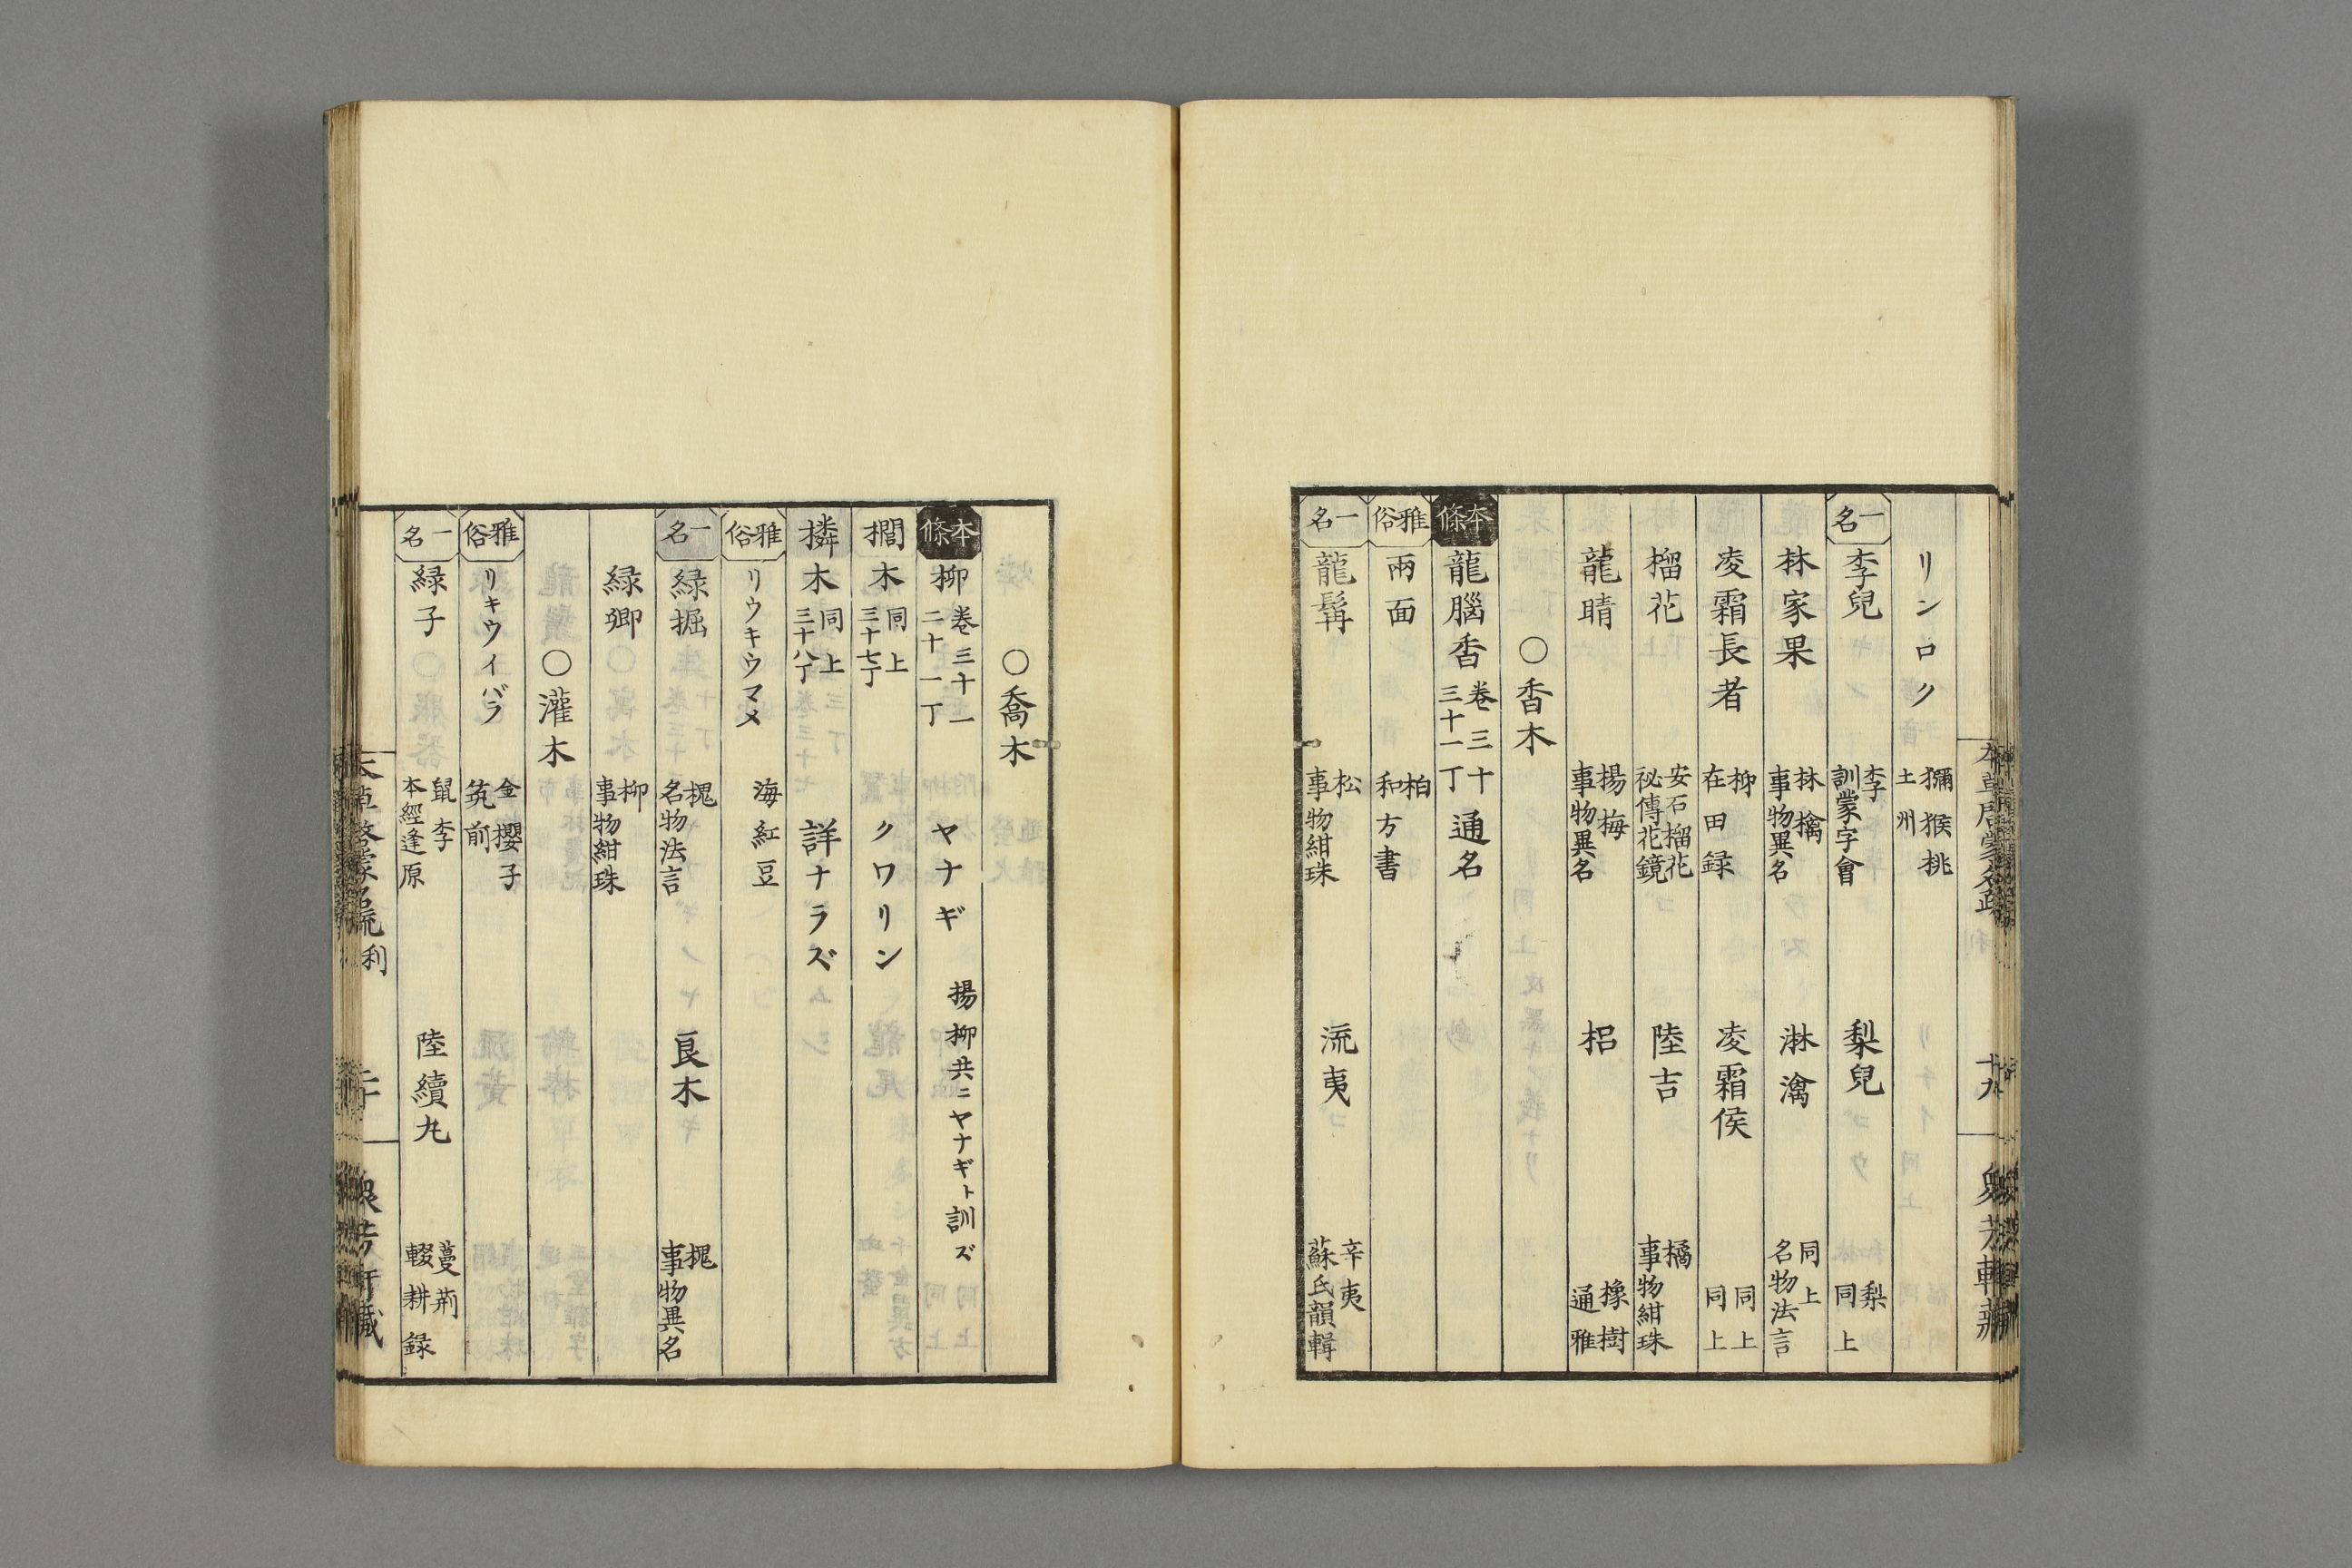 リンロク 獼猴桃 土州
一名 李兒 李 訓蒙字會 梨兒 梨 同上
林家果 林檎 事物異名 淋漓 同上 名物法言
凌霜長者 柳 在田録 凌霜侯 同上 同上
榴花 安石榴花 祕傳花鏡 陸吉 橘 事物紺珠
龍睛 楊梅 事物異名 梠 橡樹 通雅
○香木
本條 龍腦香 卷三十 三十一丁 通名
雅俗 兩面 柏 和方書
一名 龍髯 松 事物紺珠 流夷 辛夷 蘇氏韻輯
○喬木
本條 柳 卷三十一 二十一丁 ヤナギ 揚柳共ニヤナギト訓ズ
櫚木 同上 三十七丁 クワリン
橉木 同上 三十八丁 詳ナラズ
雅俗 リウキウマメ 海紅豆
一名 緑掘 槐 名物法言 良木 槐 事物異名
緑卿 柳 事物紺珠
○灌木
雅俗 リキウイバラ 金櫻子 筑前
一名 緑子 鼠李 本經逢原 陸續丸 蔓荊 輟耕録
本草啓蒙名疏 利 二十 衆芳軒藏